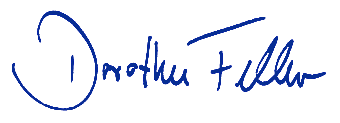 Dorothee Feller